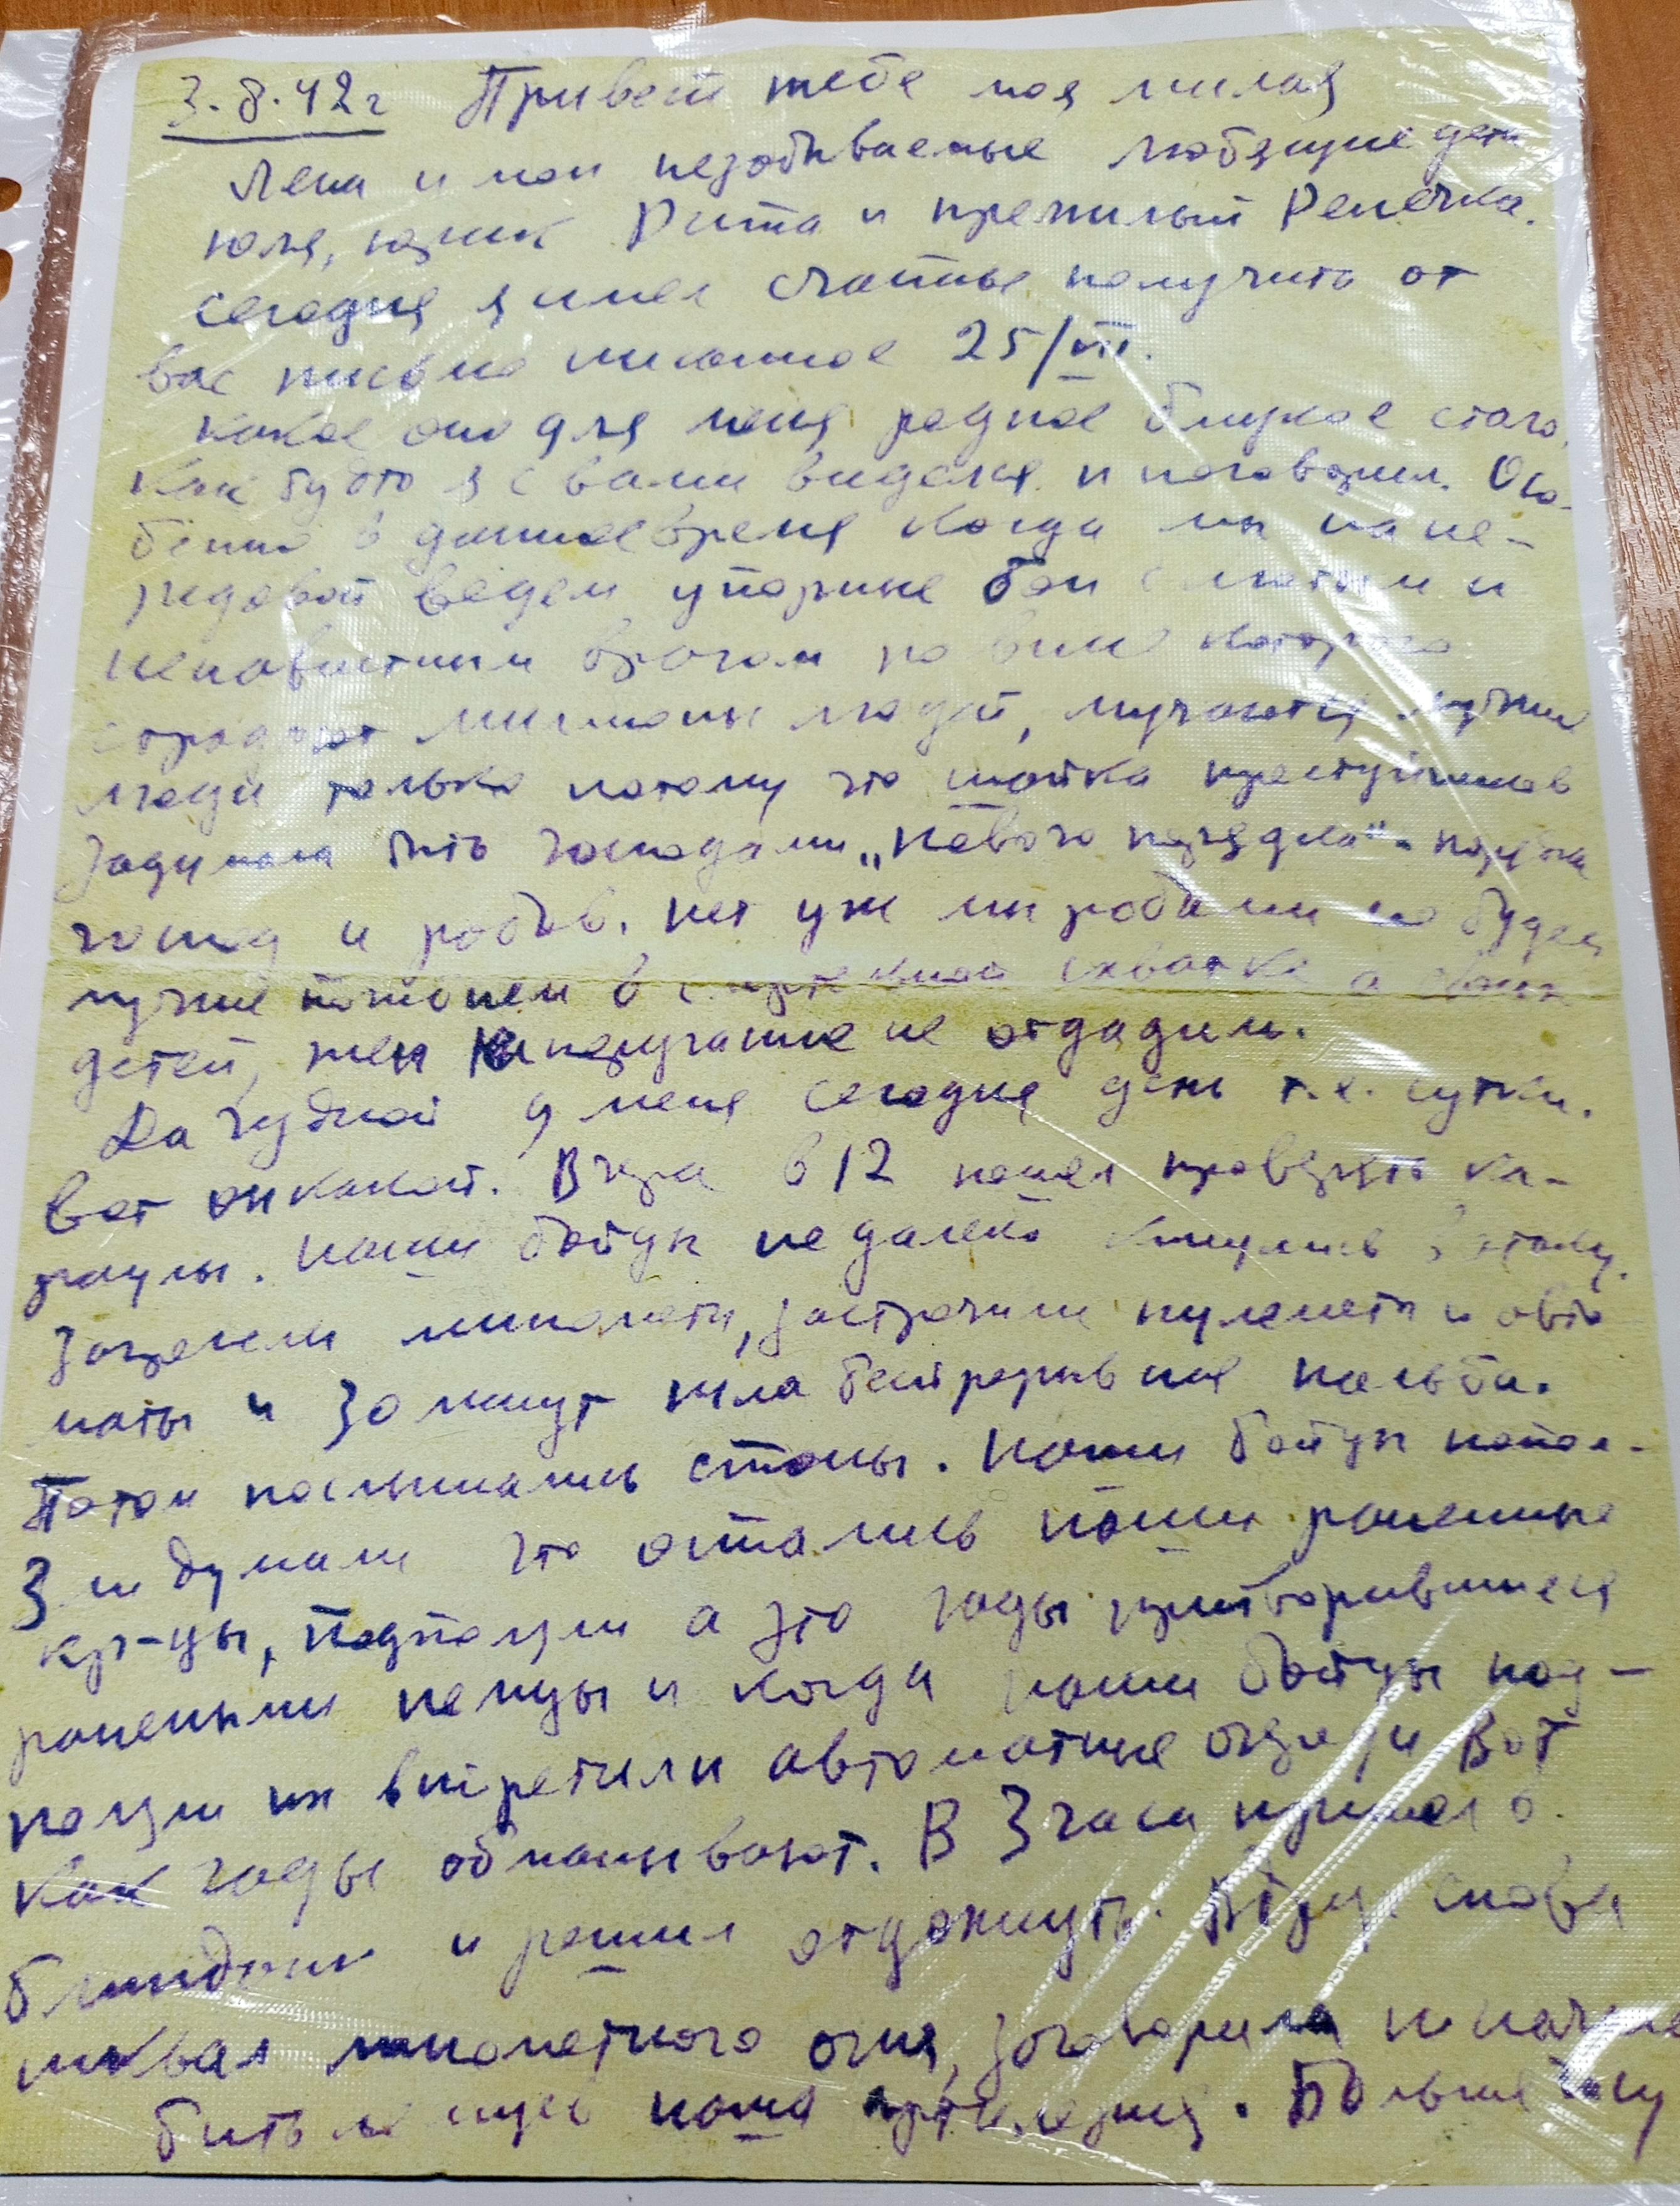 3.8.42г Привет тебе моя милая
Лена и мои незабываемые любящие дети
Юля, Юзик Рита и премилый Ренечка.
сегодня я имел счастье получить от
вас письмо писанное 25/VII.
какое оно для меня родное близкое стало,
как будто я с вами виделся и поговорил. Осо-
бенно в данное время когда мы на пе-
редовой ведем упорные бои с лютым и
ненавистным врагом по вине которого
страдают миллионы людей, мучаются лучшие
люди только потому что шайка преступников
задумала быть господами „Нового порядка" - порядка
господ и рабов. нет уж мы рабами не будем
лучше погибнем в схватке а своих
детей, жен на поругание не отдадим.
Да чудной у меня сегодня день т.е. сутки.
Вот он какой. Вчера в 12 пошел проверять ка-
раулы. Наши бойцы недалеко кинулись в атаку.
Заухали минометы, застрочили пулеметы и авто
маты и 30 минут шла беспрерывная пальба.
Потом послышались стоны. Наши бойцы попол-
зли думали что остались наши раненные
кр-цы, подползли а это гады притворившиеся
ранеными немцы и когда наши бойцы под-
ползли их встретили автоматные очереди Вот
как гады обманывают. В 3 часа пришел в
блиндаж и решил отдохнуть. Вдруг снова
шквал минометного огня, заговорила и начала
бить и еще наша артиллерия. Больше